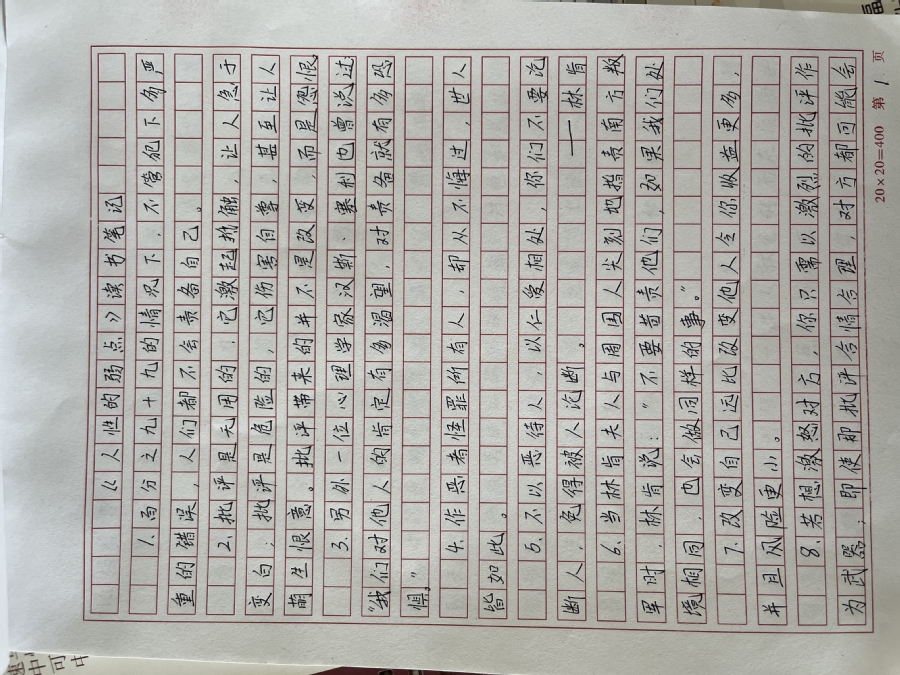 《人性的弱点》读书笔记
1.百分之九十九的情况下，不管犯下多严
重的错误，人们都不会责备自己。
2.批评是无用的，它激起抵触，让人急于
变白；批评是危险的，它伤害自尊，甚至让人
萌生恨意。批评带来的并不是改变，而是怨恨
3.另外一位心理学家汉斯·塞利也曾说过
“我们对他人的肯定有多渴望，对责备就有多恐
惧。”
4.作恶者怪罪所有人，却从不悔过，世人
皆如此。
5.不以恶待人，以仁爱相处，你们不要论
断人，免得被人论断。——林肯
6.当林肯夫人与周围人尖刻地指责南方叛
军时，林肯说：“不要苛责他们，如果我们处
境相同，也会做同样的事。”
7.改变自己远比改变他人令你收益更多，
并且风险更小。
8.若想激怒对方，你只需以激烈的批评作
为武器；即使那批评合情合理，对方都可能会
20×20=400 第 1 页